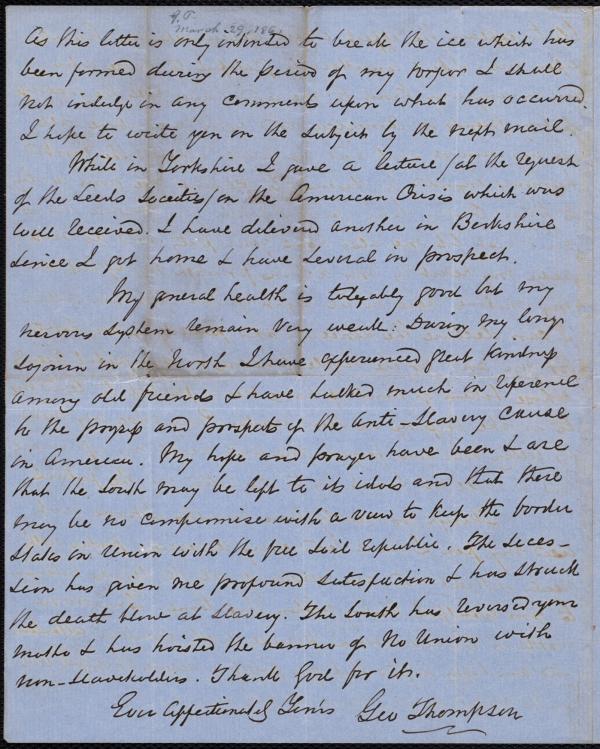 G.T.
March 29, 186
As this letter is only intended to break the ice which has
been formed during the period of my torpor I shall
not indulge in any comments upon what has occurred.
I hope to write you on the subject by the next mail.
While in Yorkshire I gave a lecture /at the request
of the Leeds Societies/ on the American Crisis which was
well received. I have delivered another in Berkshire
since I got home & have several in prospect.
My general health is tolerably good but my
nervous system remain very weak: During my long
sojourn in the North I have experienced great kindness
among old friends & have talked much in reference
to the progress and prospects of the Anti-Slavery Cause
in America. My hope and prayer have been & are
that the South may be left to its idols and that there
may be no compromise with a view to keep the border
States in Union with the free Soil republic. The Seces-
sion has given me profound satisfaction & has struck
the death blow at Slavery. The South has reversed your
motto & has hoisted the banner of No Union with
non-Slaveholders. Thank God for it.
Ever Affectionately Yours Geo Thompson